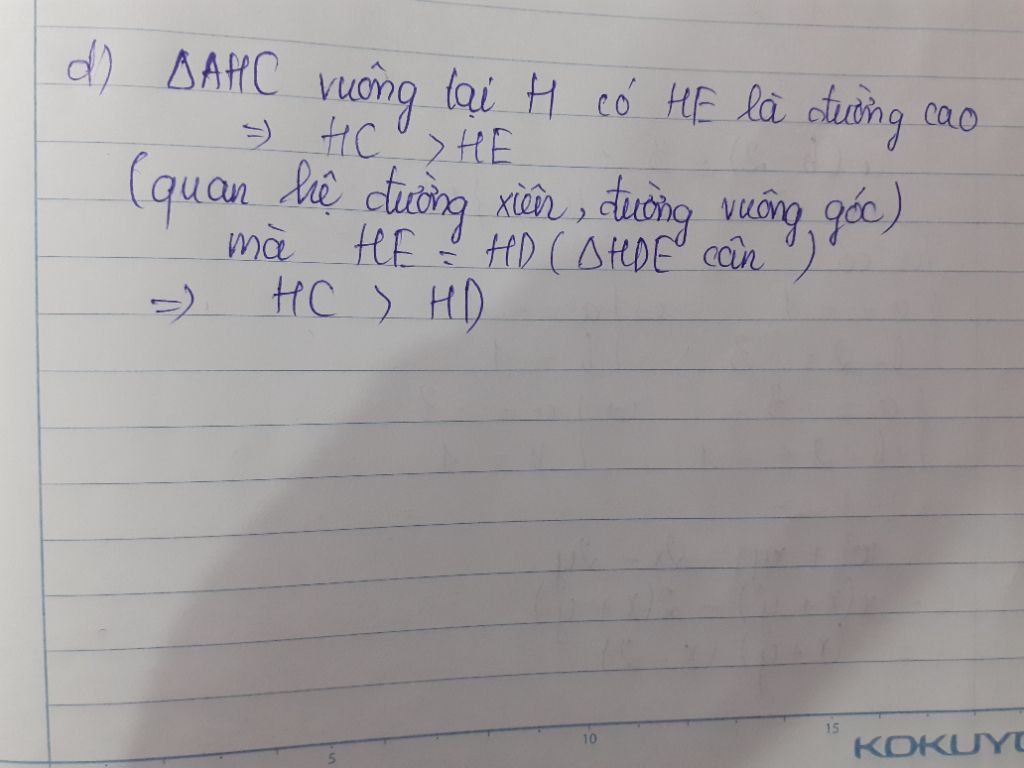 d) ΔAHC vuông tại H có HE là đường cao
=> HC > HE
(quan hệ đường xiên, đường vuông góc)
mà HE = HD (ΔHDE cân)
=> HC > HD
5 10 15 KOKUYO